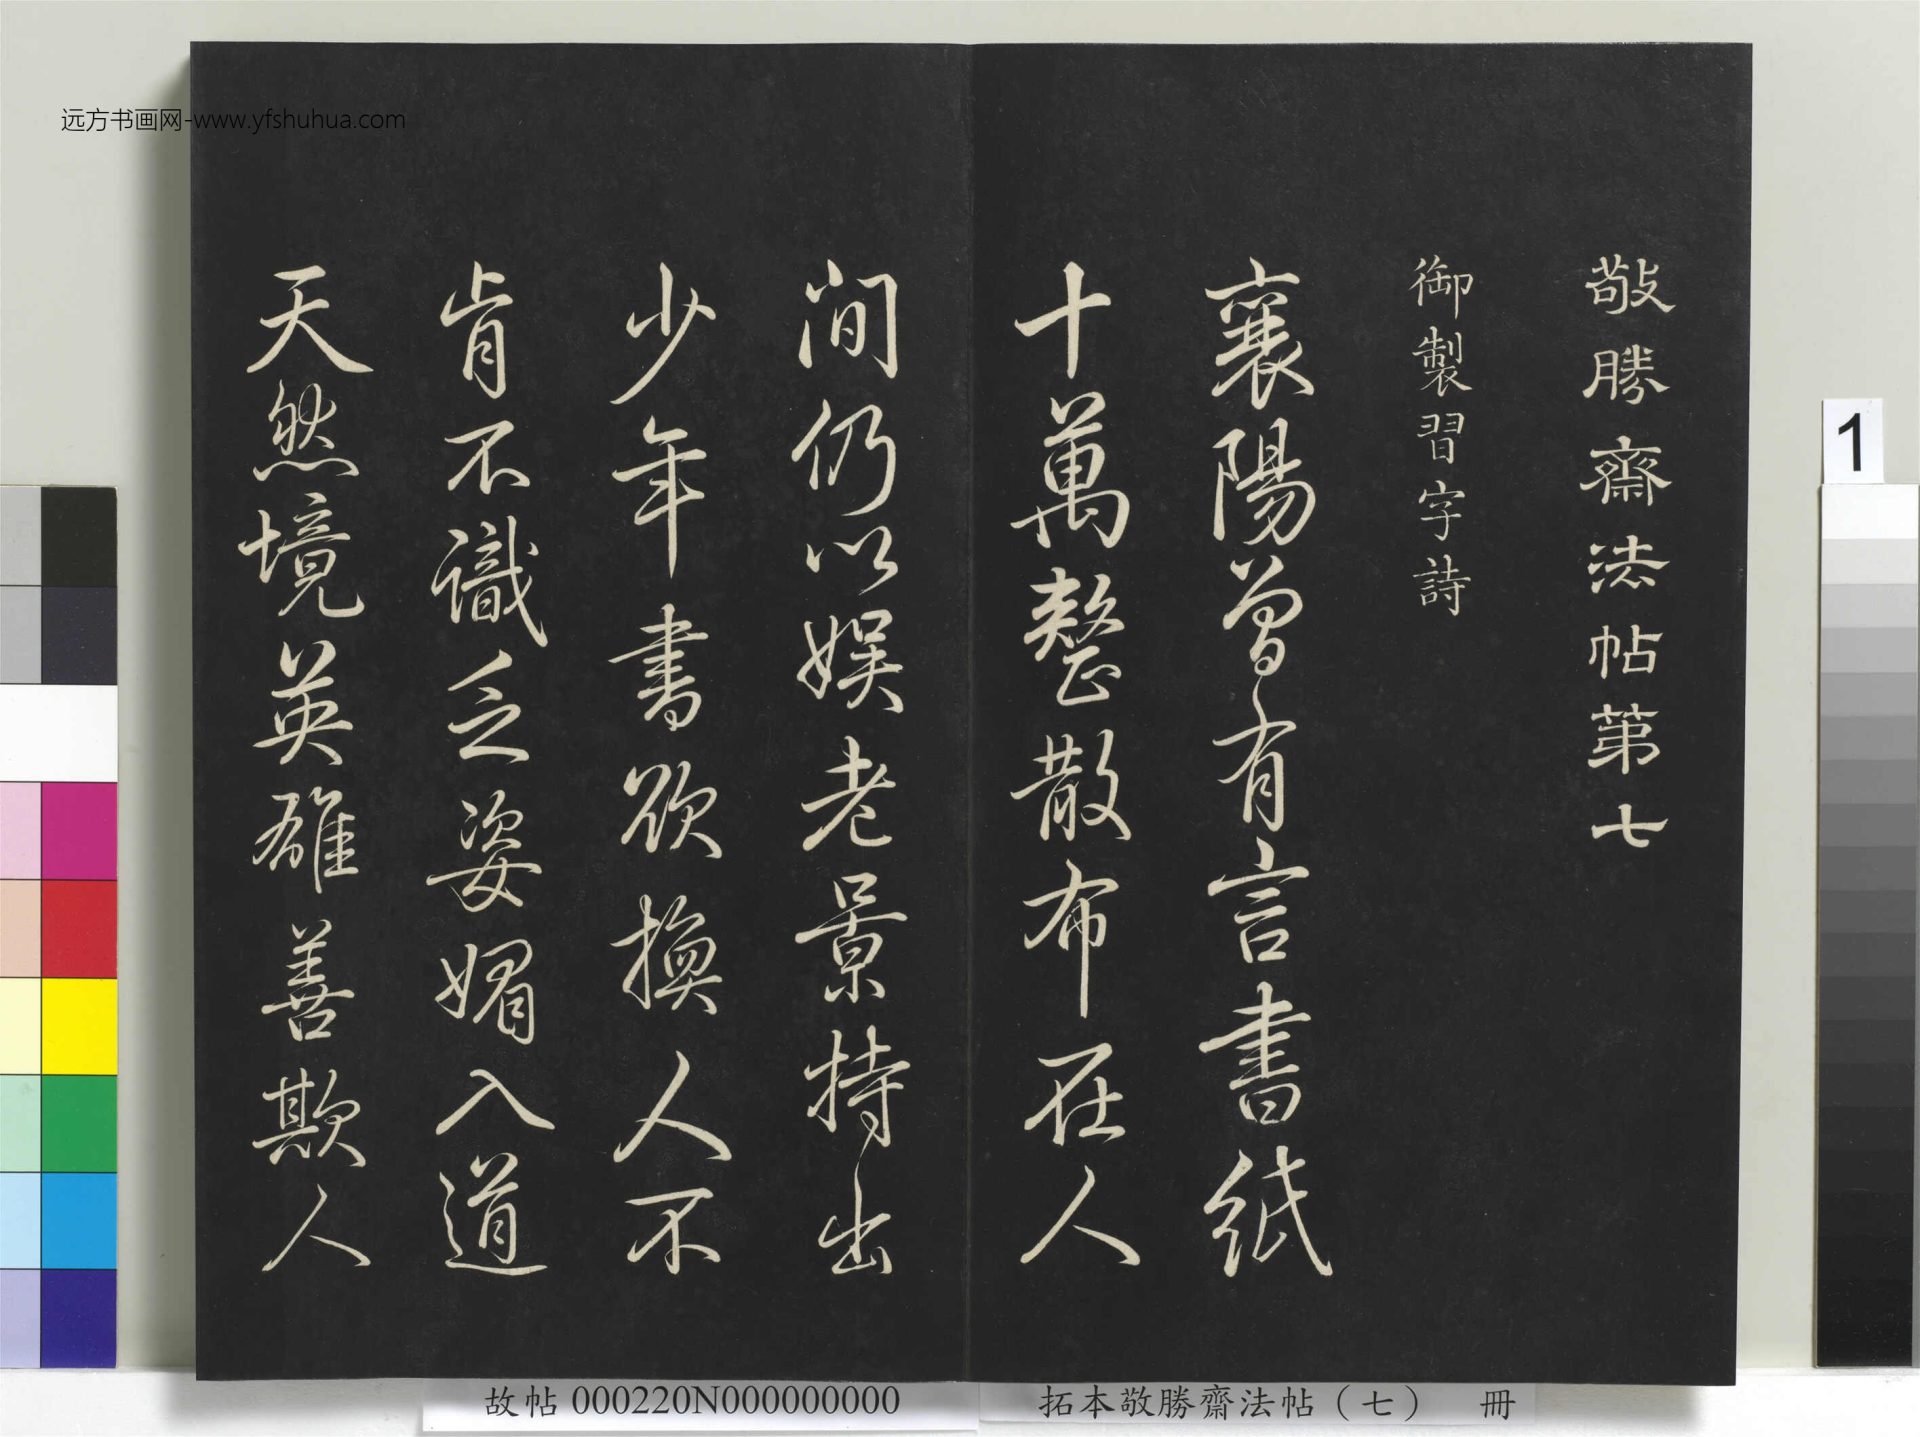 远方书画网-www.yfshuhua.com
敬勝齋法帖第七
御製習字詩
襄陽曾有言書紙
十萬整散布在人
間仍以娱老景持出
少年書欲換人不
肯不識乏姿媚入道
天然境英雄善欺人
1
故帖 000220N000000000
拓本敬勝齋法帖（七） 冊